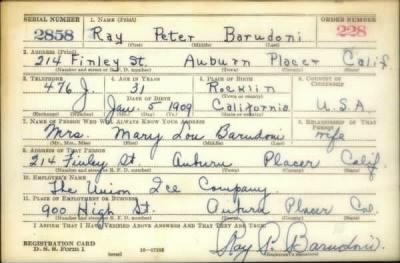 SERIAL NUMBER 1. NAME (Print) ORDER NUMBER
2858 Ray Peter Barudoni 228
(First) (Middle) (Last)
2. ADDRESS (Print)
214 Finley St. Auburn Placer Calif
(Number and street or R. F. D. number) (Town) (County) (State)
3. TELEPHONE 4. AGE IN YEARS 5. PLACE OF BIRTH 6. COUNTRY OF CITIZENSHIP
476 J. 31 Rocklin
DATE OF BIRTH (Town or county)
Jan. 5 1909 California U.S.A.
(Mo.) (Day) (Yr.) (State or country)
7. NAME OF PERSON WHO WILL ALWAYS KNOW YOUR ADDRESS 8. RELATIONSHIP OF THAT PERSON
Mrs. Mary Lou Barudoni wife
(Mr., Mrs., Miss) (First) (Middle) (Last)
9. ADDRESS OF THAT PERSON
214 Finley St. Auburn Placer Calif.
(Number and street or R. F. D. number) (Town) (County) (State)
10. EMPLOYER'S NAME
The Union Ice Company.
11. PLACE OF EMPLOYMENT OR BUSINESS
900 High St. Auburn Placer Cal.
(Number and street or R. F. D. number) (Town) (County) (State)
I AFFIRM THAT I HAVE VERIFIED ABOVE ANSWERS AND THAT THEY ARE TRUE.
REGISTRATION CARD
D. S. S. Form 1 (over) 16-17105 Ray P. Barudoni